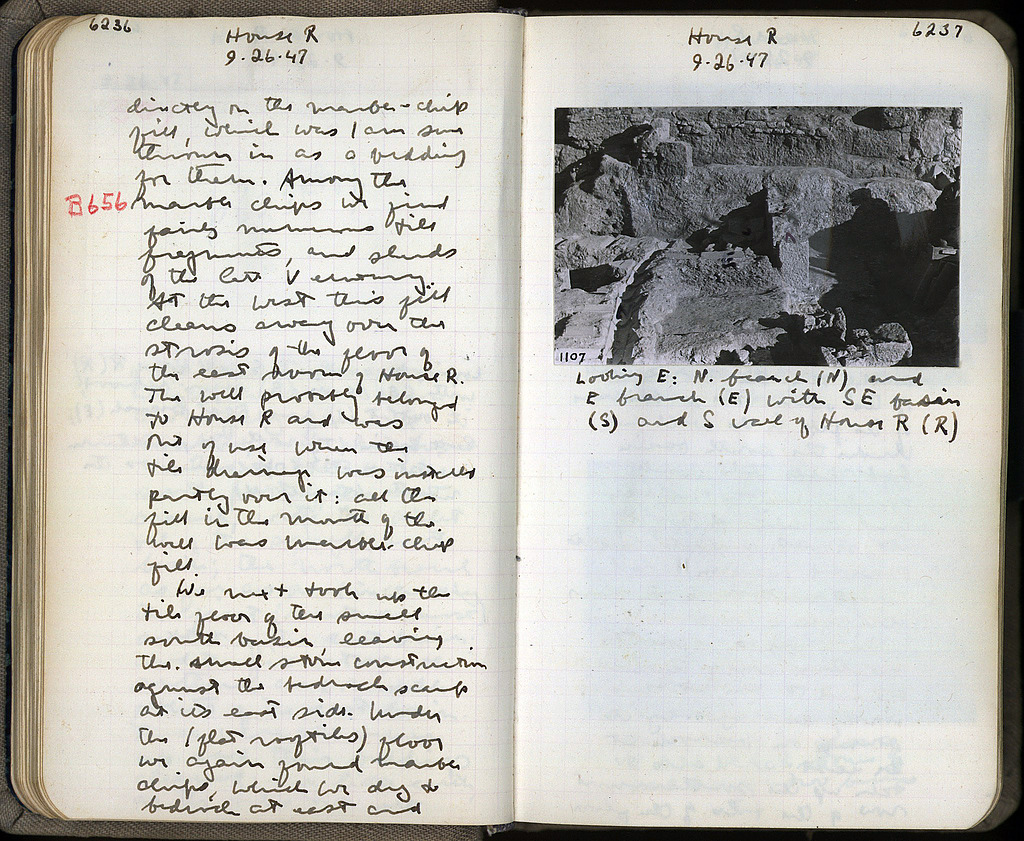 6236
House R
9·26·47
directly on the marble-chip
fill, which was I am sure
thrown in as a bedding
for them. Among the
B656
marble chips we find
fairly numerous tile
fragments, and sherds
of the late V century.
At the west this fill
cleans away over the
strosis of the floor of
the east room of House R.
The well probably belonged
to House R and was
out of use when the
tile drainage was installed
partly over it: all the
fill in the mouth of the
well was marble-chip
fill.
We next took up the
tile floor of the small
south basin, leaving
the small stone construction
against the bedrock scarp
at its east side. Under
the (flat rooftiles) floor
we again found marble
chips, which we dug to
bedrock at east and
6237
House R
9·26·47
1107
Looking E: N. branch (N) and
E branch (E) with SE basin
(S) and S wall of House R (R)